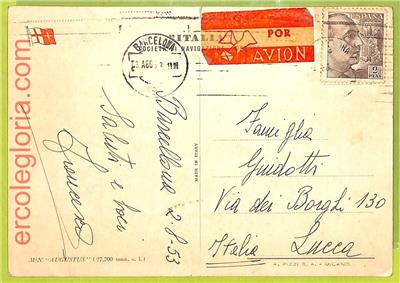 ercolegloria.com
"ITALIA"
SOCIETÀ DI NAVIGAZIONE
BARCELONA
POR
AVION
ESPAÑA
2
PTAS
Barcellona 2-8-53
Saluti e baci
Francesco
Famiglia
Guidotti
Via dei Borghi 130
Italia Lucca
MADE IN ITALY
M/N "AUGUSTUS" (27.700 tonn. s. l.)
A. PIZZI S. A. - MILANO